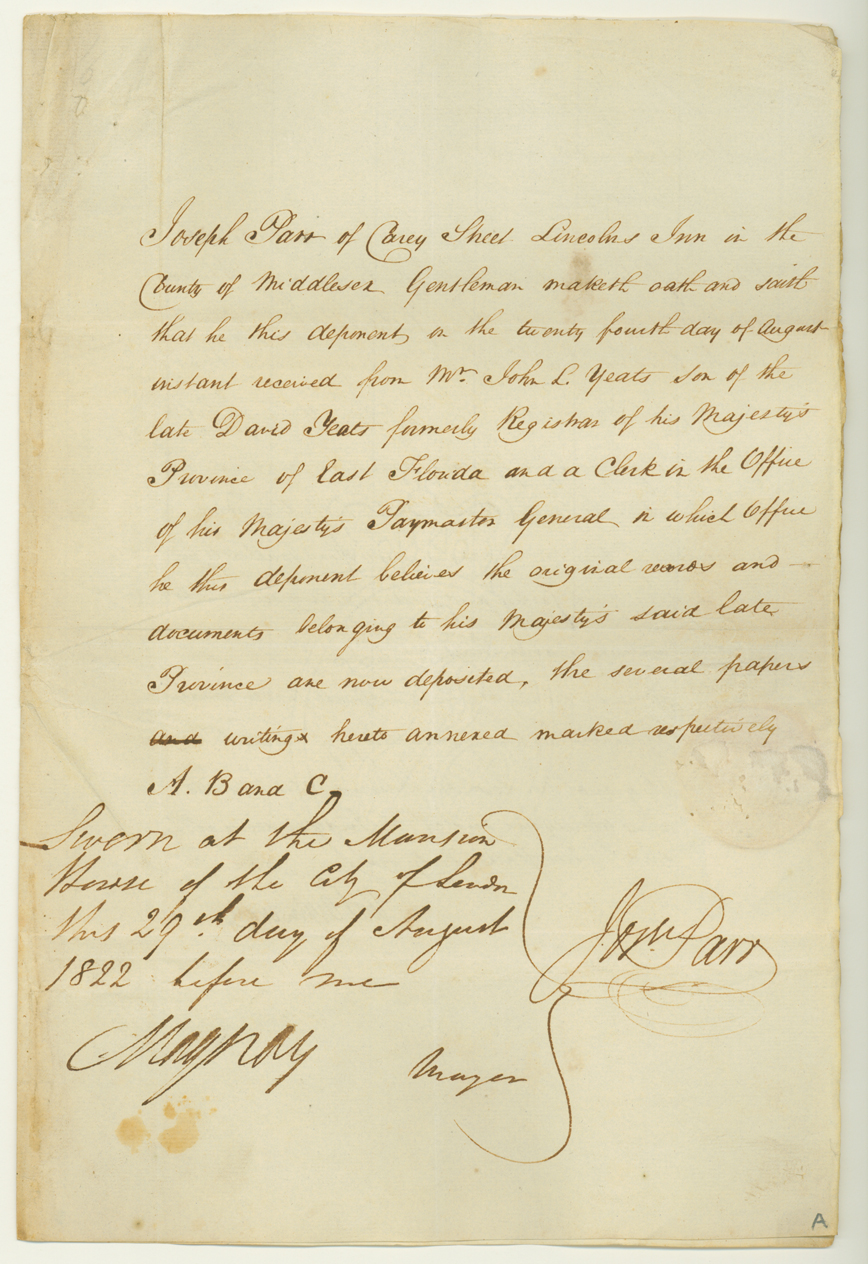 Joseph Parr of Carey Street Lincolns Inn in the
County of Middlesex Gentleman maketh oath and saith
that he this deponent, on the twenty fourth day of August
instant received from Mr. John L. Yeats son of the
late David Yeats formerly Registrar of his Majesty's
Province of East Florida and a Clerk in the Office
of his Majesty's Paymaster General in which Office
he this deponent believes the original records and
documents belonging to his Majesty's said late
Province are now deposited, the several papers
and writings hereto annexed marked respectively
A. B and C.
Sworn at the Mansion
House of the City of London
this 29th. day of August
1822 before me
Josh. Parr
Magnay
Mayor
A